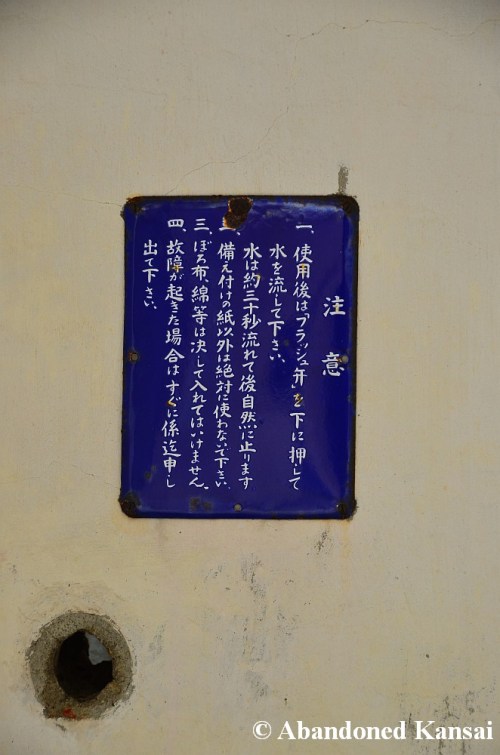 注意
一、使用後は「フラッシュ弁」を下に押して
水を流して下さい。
水は約三十秒流れて後自然に止ります
二、備え付けの紙以外は絶対に使わないで下さい。
三、ぼろ布、綿等は決して入れてはいけません。
四、故障が起きた場合はすぐに係迄申し
出て下さい。
© Abandoned Kansai